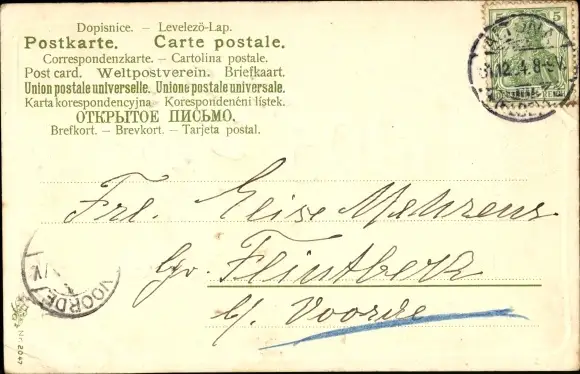 Dopisnice. – Levelező-Lap.
Postkarte. Carte postale.
Correspondenzkarte. – Cartolina postale.
Post card. Weltpostverein. Briefkaart.
Union postale universelle. Unione postale universale.
Karta korespondencyjna Korespondenční lístek.
ОТКРЫТОЕ ПИСЬМО.
Brefkort. – Brevkort. – Tarjeta postal.
5 5
31.12.04. 8-9V.
Frl. Elise Mehrens
Gr. Flintbeck
b/ Voorde
VOORDE
No. 2047